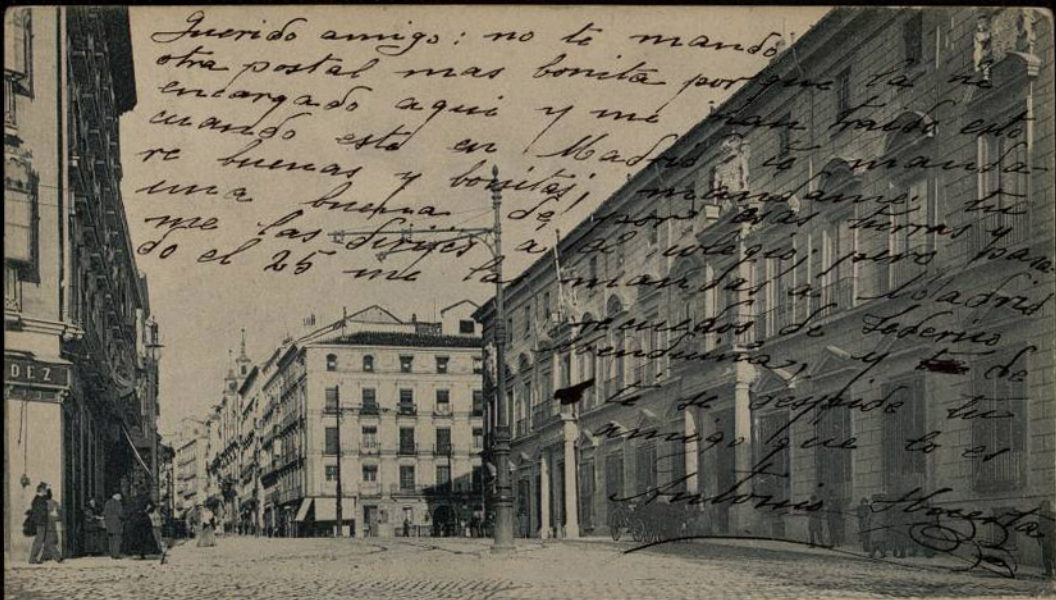 Querido amigo: no te mando
otra postal mas bonita porque la he
encargado aqui y me han traido esto
cuando esté en Madrid te manda-
re buenas y bonitas; mandame tu
una buena de por esas tierras y
me las dirijes a el colegio; pero pasa-
do el 25 me las mandas a Madrid
recuerdos de Federico
y de
te se despide tu
amigo que lo es
Antonio
DEZ